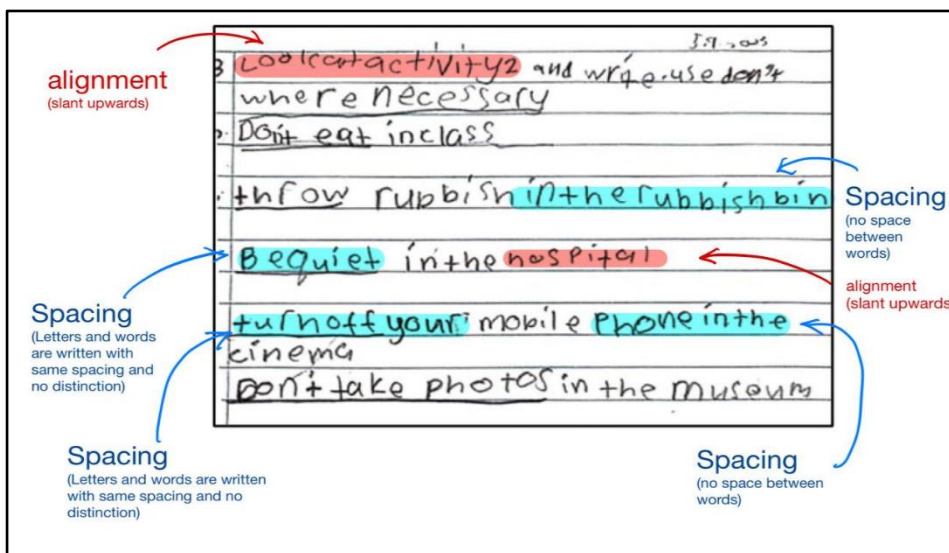 alignment
(slant upwards)
3 Lookatactivity2 and write.use don't
where necessary
Don't eat inclass
throw rubbishintherubbishbin
Bequiet inthe hospital
turnoffyour mobile phoneinthe
cinema
Don't take photos in the museum
Spacing
(no space
between
words)
alignment
(slant upwards)
Spacing
(Letters and words
are written with
same spacing and
no distinction)
Spacing
(Letters and words are written
with same spacing and no
distinction)
Spacing
(no space between
words)